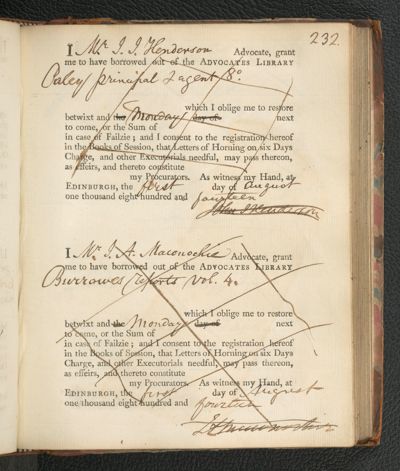 232.
I Mr. J. J. Henderson Advocate, grant
me to have borrowed out of the ADVOCATES LIBRARY
Paley principal & agent 8o
which I oblige me to restore
betwixt and the Monday day of next
to come, or the Sum of
in case of Failzie; and I consent to the registration hereof
in the Books of Session, that Letters of Horning on six Days
Charge, and other Executorials needful, may pass thereon,
as effeirs, and thereto constitute
my Procurators. As witness my Hand, at
EDINBURGH, the first day of August
one thousand eight hundred and fourteen
I Mr. J. A. Maconochie Advocate, grant
me to have borrowed out of the ADVOCATES LIBRARY
Burrowes reports vol. 4.
which I oblige me to restore
betwixt and the Monday day of next
to come, or the Sum of
in case of Failzie; and I consent to the registration hereof
in the Books of Session, that Letters of Horning on six Days
Charge, and other Executorials needful, may pass thereon,
as effeirs, and thereto constitute
my Procurators. As witness my Hand, at
EDINBURGH, the first day of August
one thousand eight hundred and fourteen